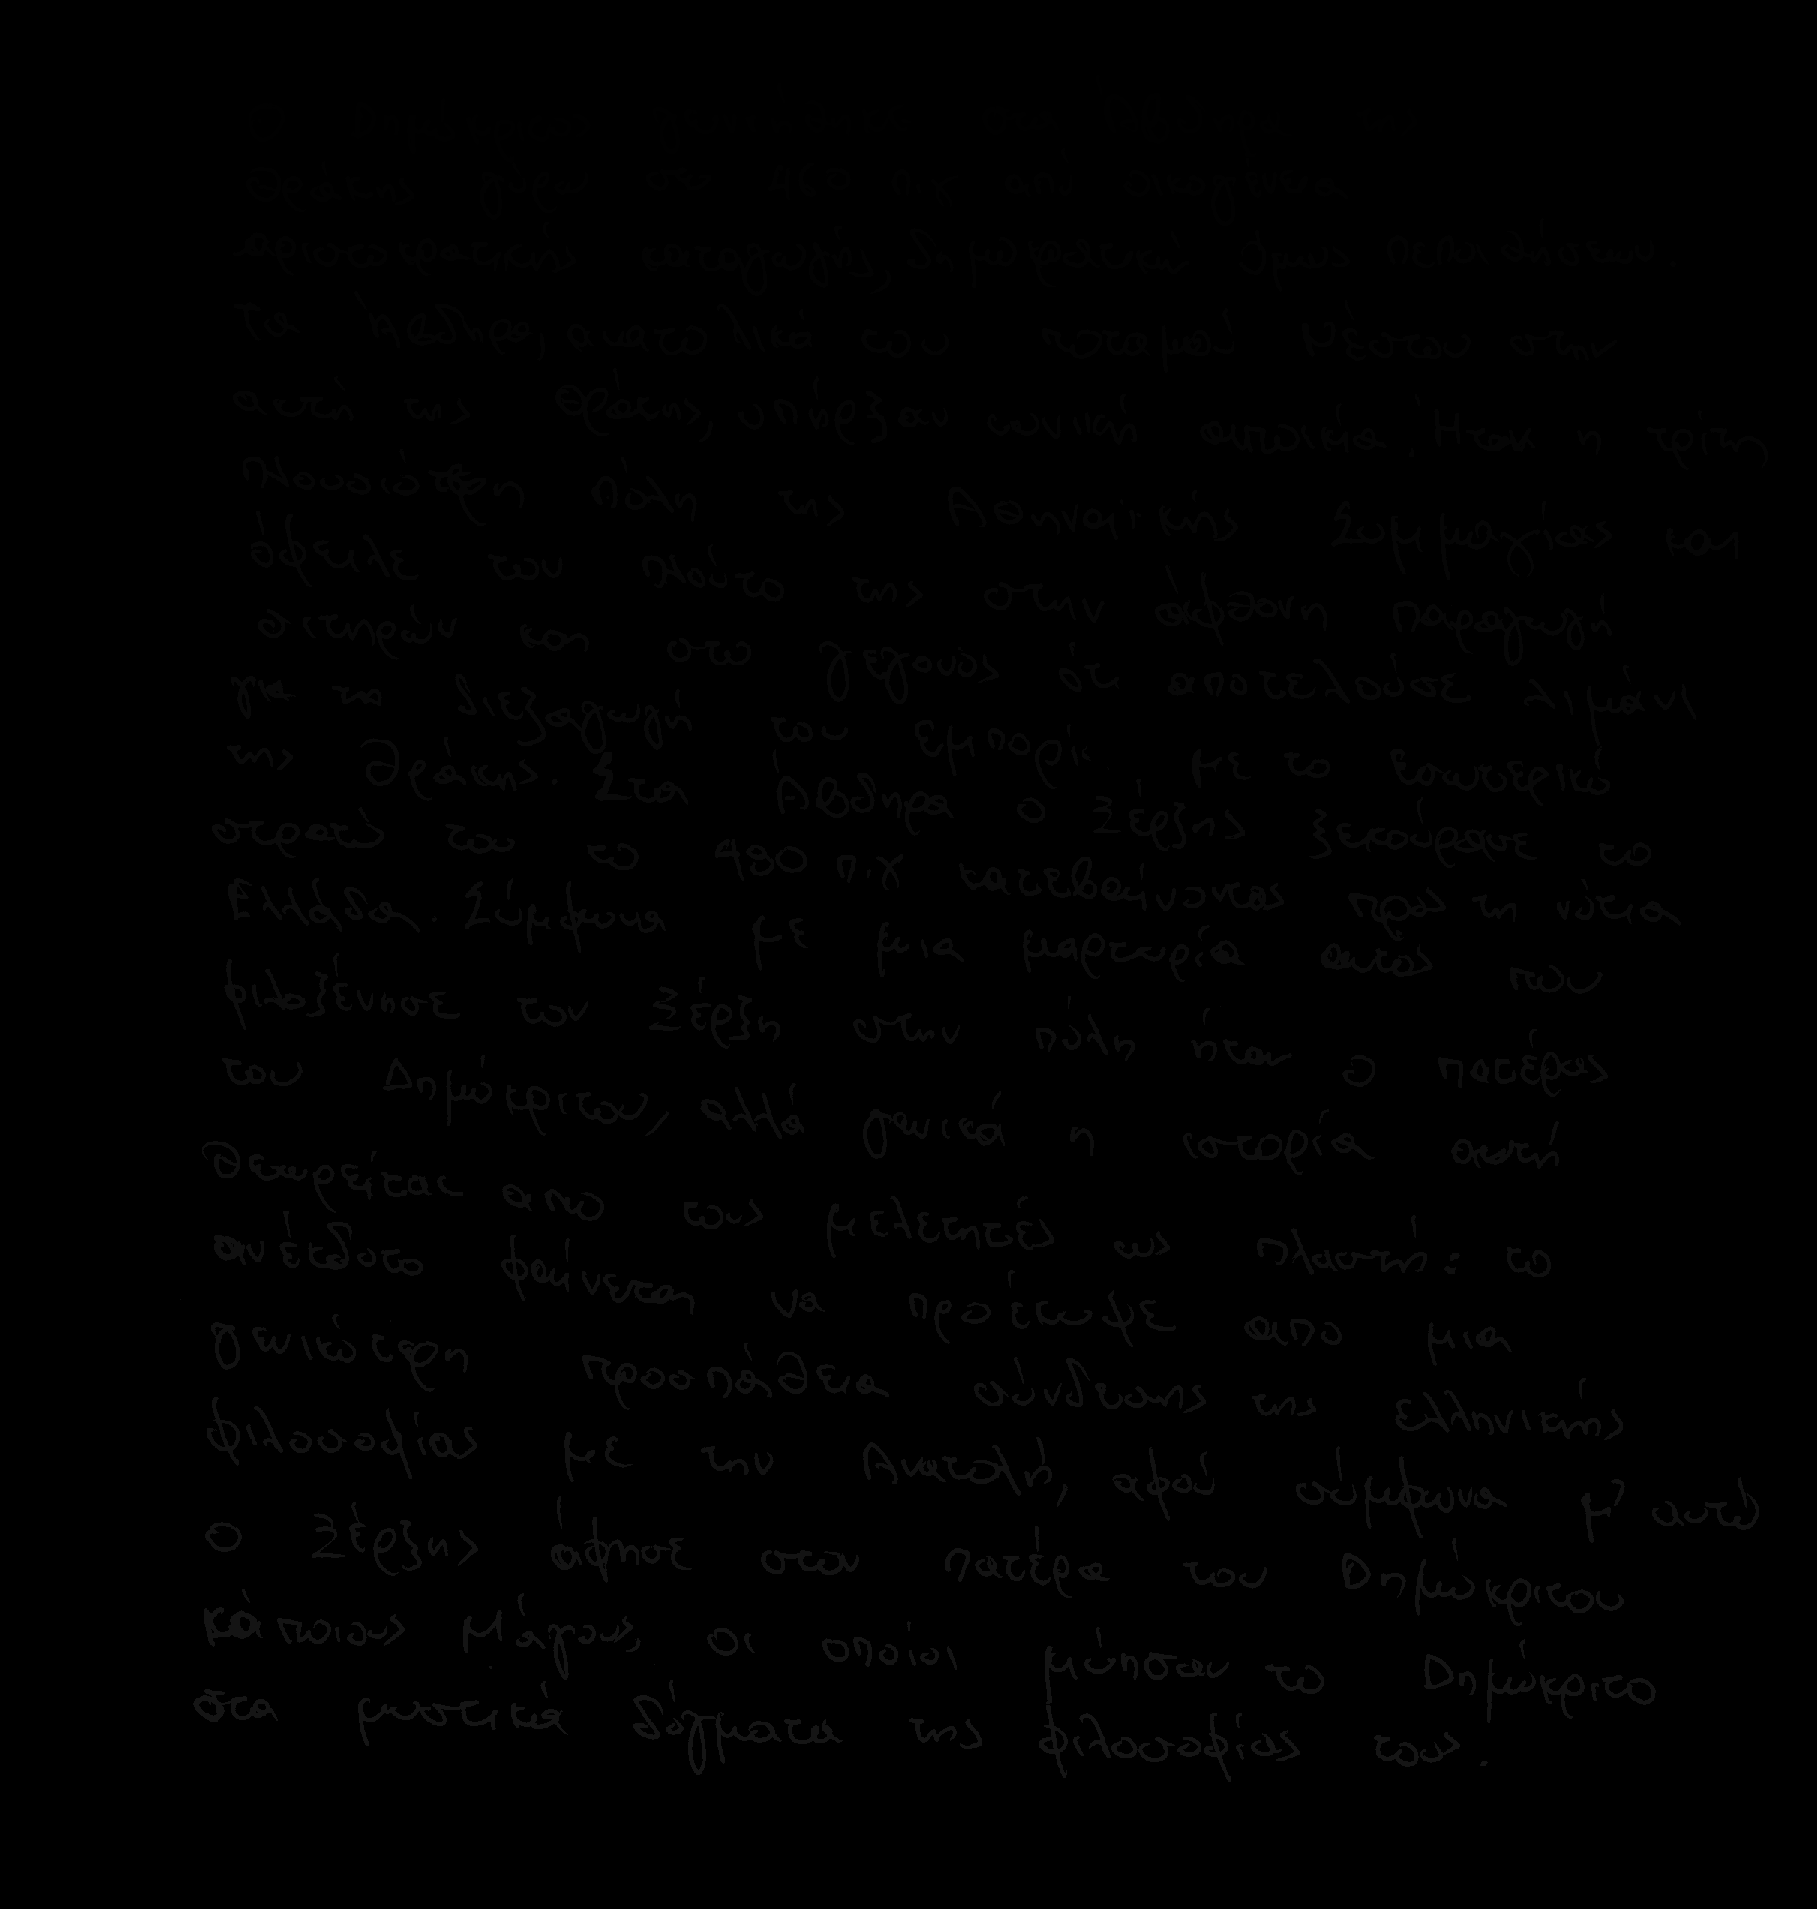 Ο Δημόκριτος γεννήθηκε στα Άβδηρα της
Θράκης γύρω στο 460 π.χ από οικογένεια
αριστοκρατικής καταγωγής, δημοκρατικών όμως πεποιθήσεων.
Τα Άβδηρα, ανατολικά του ποταμού Νέστου στην
ακτή της Θράκης, υπήρξαν ιωνική αποικία. Ήταν η τρίτη
πλουσιότερη πόλη της Αθηναϊκής Συμμαχίας και
όφειλε τον πλούτο της στην άφθονη παραγωγή
σιτηρών και στο γεγονός ότι αποτελούσε λιμάνι
για τη διεξαγωγή του εμπορίου με το εσωτερικό
της Θράκης. Στα Άβδηρα ο Ξέρξης ξεκούρασε το
στρατό του το 480 π.χ κατεβαίνοντας προς τη νότια
Ελλάδα. Σύμφωνα με μια μαρτυρία αυτός που
φιλοξένησε τον Ξέρξη στην πόλη ήταν ο πατέρας
του Δημόκριτου, αλλά γενικά η ιστορία αυτή
θεωρείται απο τους μελετητές ως πλαστή: το
ανέκδοτο φαίνεται να προέκυψε απο μια
γενικότερη προσπάθεια σύνδεσης της ελληνικής
φιλοσοφίας με την Ανατολή, αφού σύμφωνα μ' αυτό
ο Ξέρξης άφησε στον πατέρα του Δημόκριτου
κάποιους Μάγους, οι οποίοι μύησαν το Δημόκριτο
στα μυστικά δόγματα της φιλοσοφίας τους.